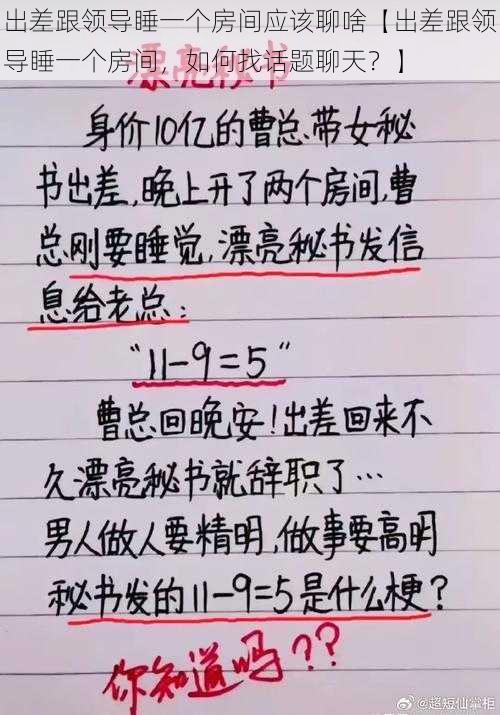 出差跟领导睡一个房间应该聊啥【出差跟领
导睡一个房间，如何找话题聊天？】
漂亮秘书
身价10亿的曹总、带女秘
书出差,晚上开了两个房间,曹
总刚要睡觉,漂亮秘书发信
息给老总:
"11-9=5"
曹总回晚安!出差回来不
久漂亮秘书就辞职了…
男人做人要精明,做事要高明
秘书发的11-9=5是什么梗?
你知道吗??
@超短仙掌柜